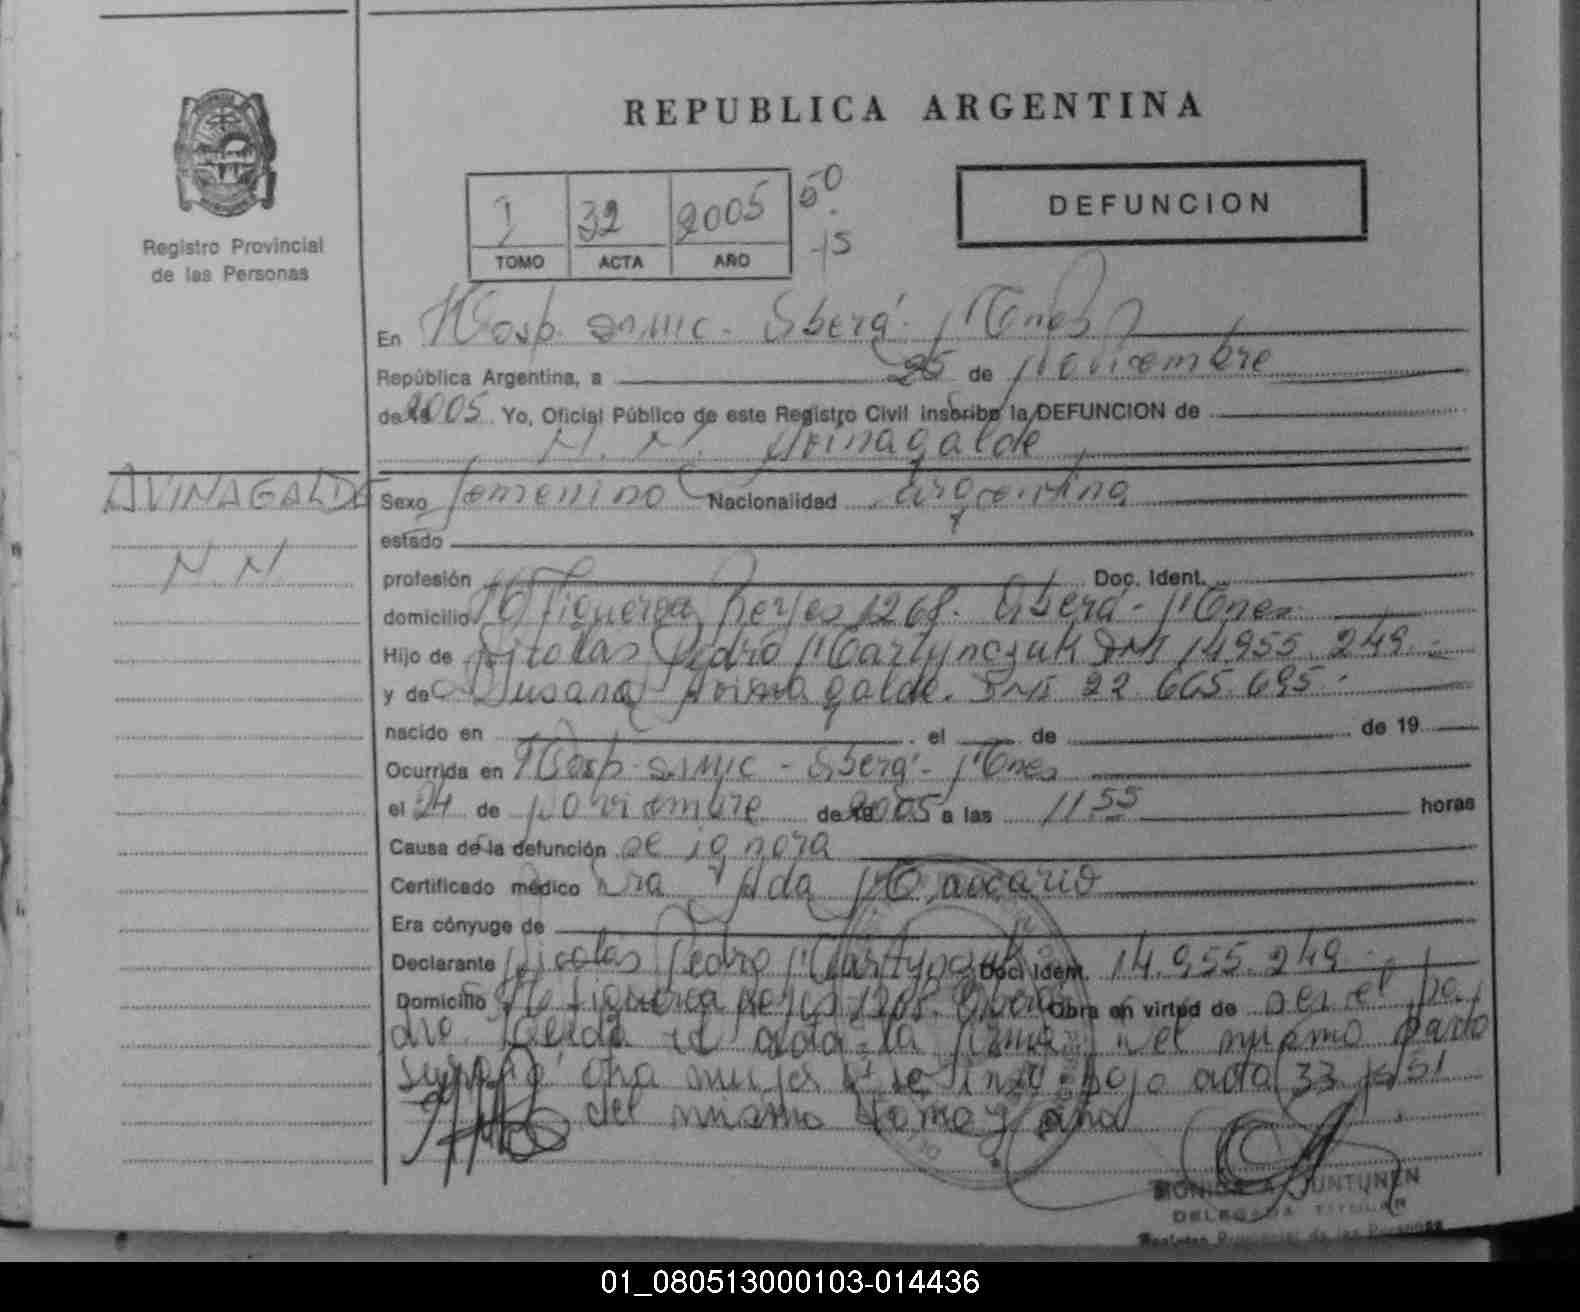 REPUBLICA ARGENTINA
Registro Provincial
de las Personas
1 32 2005 50
TOMO ACTA AÑO -15
DEFUNCION
En Hosp. SAMIC - Oberá - Mnes
República Argentina, a 25 de noviembre
de 2005 Yo, Oficial Público de este Registro Civil inscribo la DEFUNCION de
N. N. Avinagalde
AVINAGALDE
N N
Sexo femenino Nacionalidad argentina
estado
profesión Doc. Ident.
domicilio Figueroa Reyes 1268. Oberá - Mnes
Hijo de Nicolas Pedro Martynczuk DNI 14955.249.-
y de Susana Avinagalde. DNI 22.665.695.-
nacido en el de de 19
Ocurrida en Hosp. SAMIC - Oberá - Mnes
el 24 de noviembre de 2005 a las 11.55 horas
Causa de la defunción se ignora
Certificado médico Dra Ada Maccario
Era cónyuge de
Declarante Nicolas Pedro Martynczuk Doc. Ident. 14.955.249.-
Domicilio Figueroa Reyes 1268. Oberá Obra en virtud de ser el pa
dre. Leída el acta la firma. el mismo parto
otra mujer bajo acta 33 fs 51
del mismo tomo y año
MONICA A. JUNTUNEN
DELEGADA TITULAR
Registro Provincial de las Personas
01_080513000103-014436